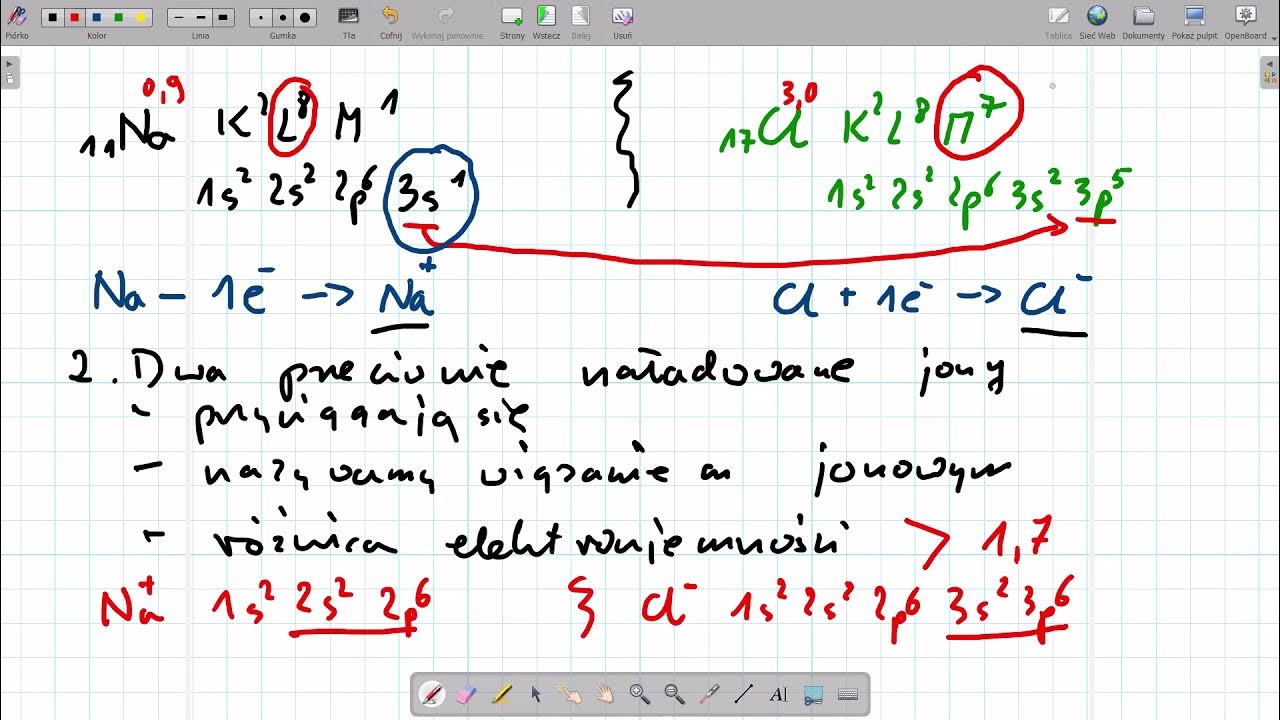 Piórko Kolor Linia Gumka Tło Cofnij Wykonaj ponownie Strony Wstecz Dalej Usuń Tablica Sieć Web Dokumenty Pokaż pulpit OpenBoard
0,9 3,0
₁₁Na K² L⁸ M¹ ₁₇Cl K² L⁸ M⁷
1s² 2s² 2p⁶ 3s¹ 1s² 2s² 2p⁶ 3s² 3p⁵
Na – 1e⁻ → Na⁺ Cl + 1e⁻ → Cl⁻
2. Dwa przeciwnie naładowane jony
- przyciągają się
- nazywamy wiązaniem jonowym
- różnica elektroujemności > 1,7
Na⁺ 1s² 2s² 2p⁶ } Cl⁻ 1s² 2s² 2p⁶ 3s² 3p⁶
AI